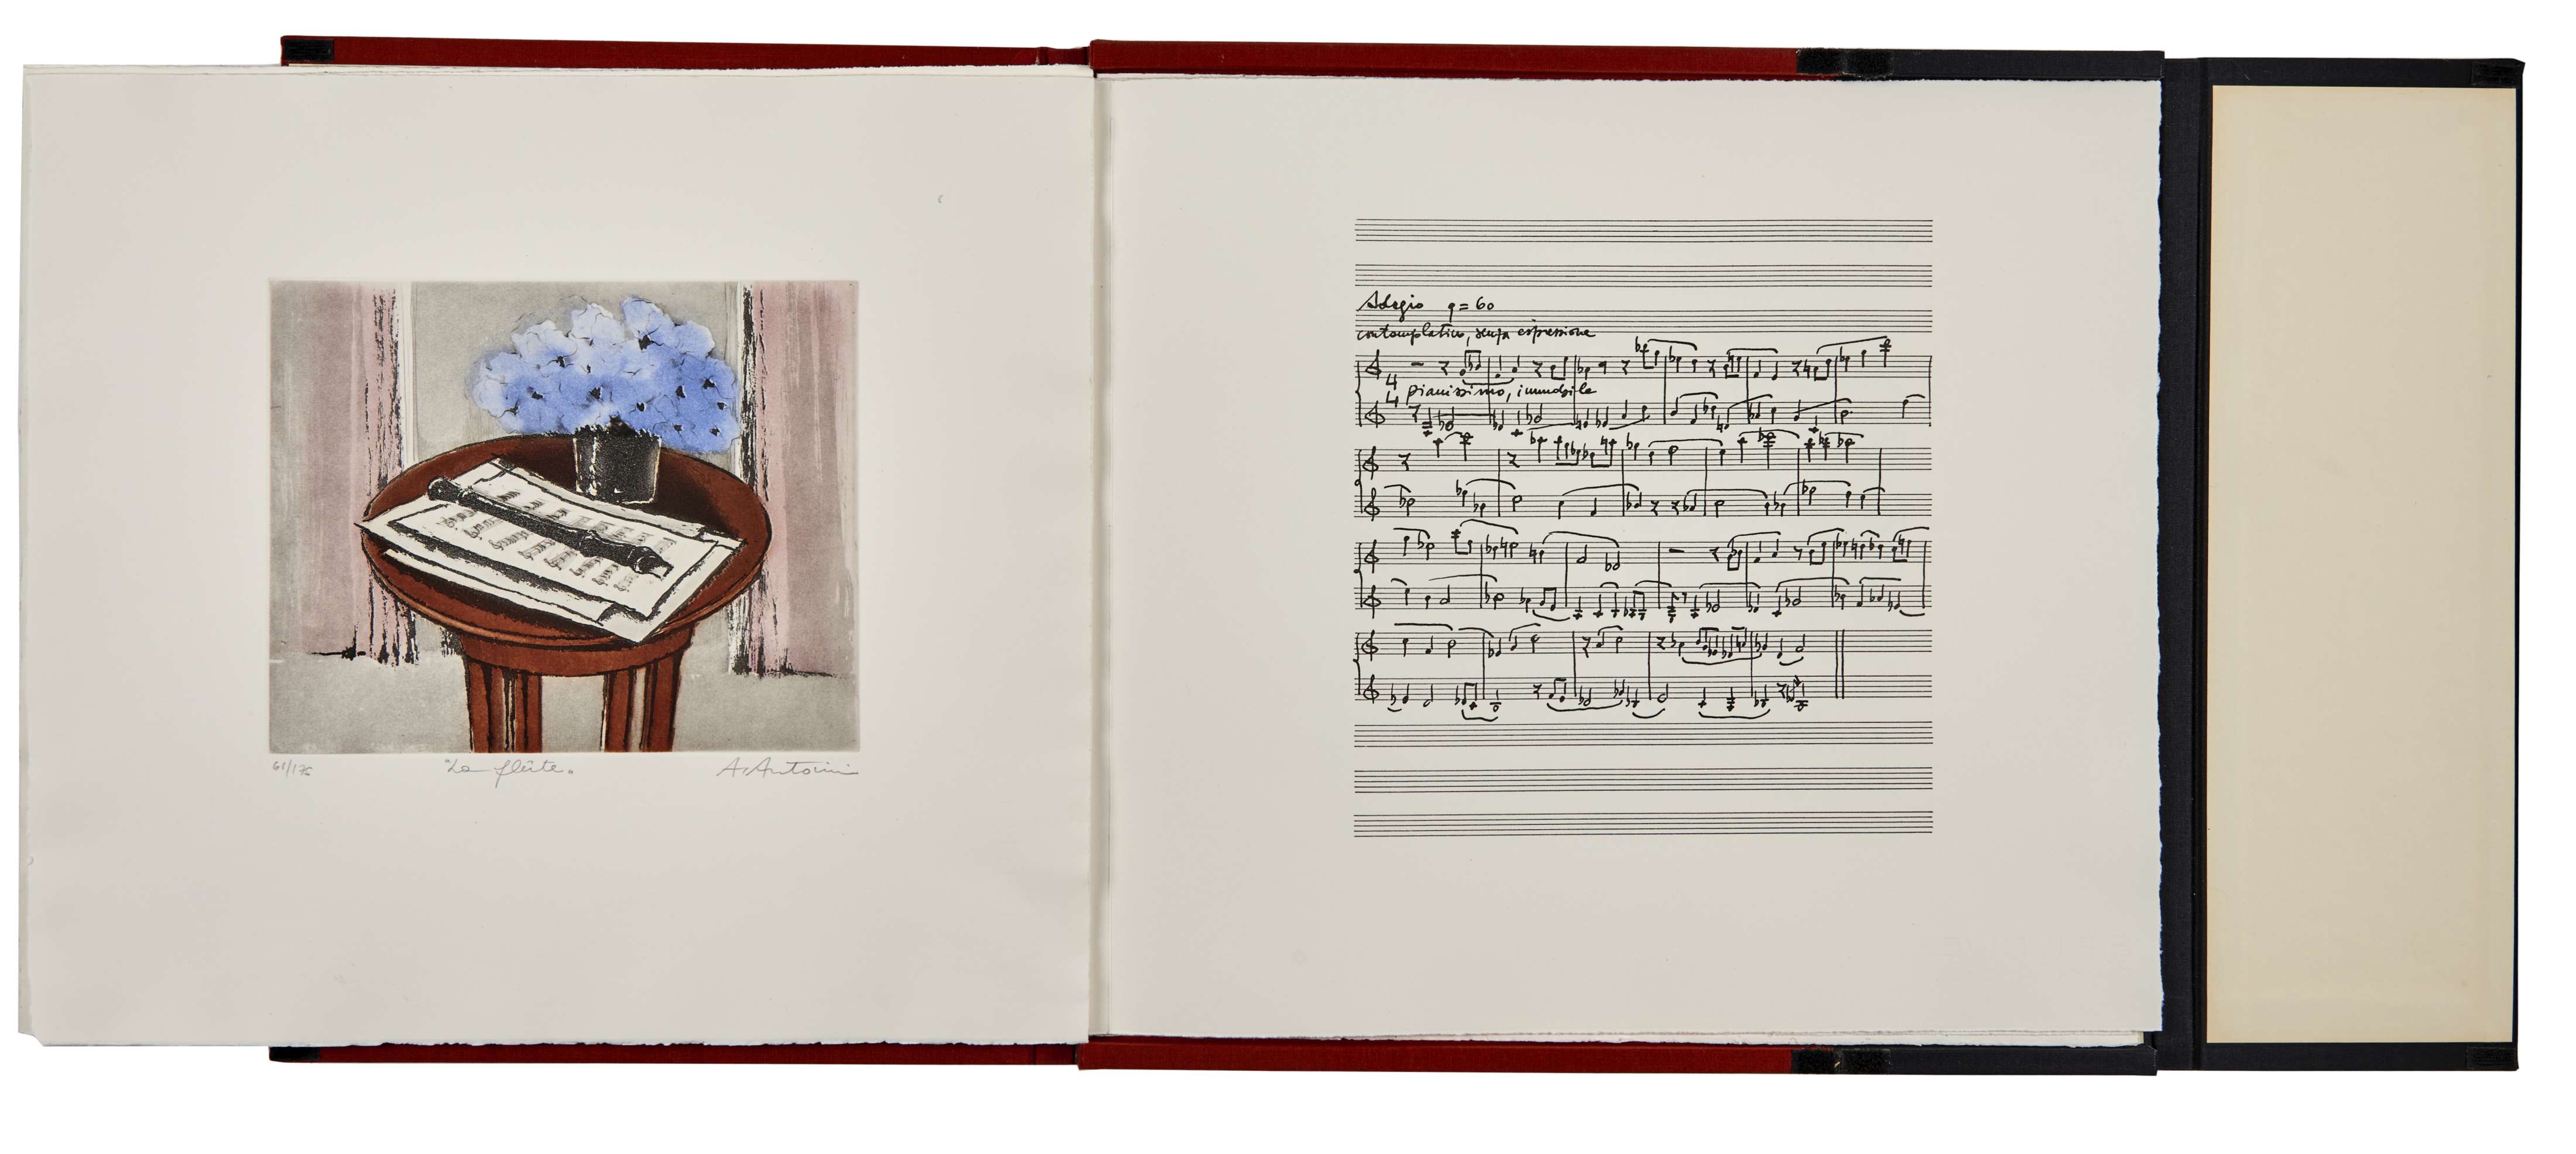 61/175
"La flûte".
A. Antonini
Adagio ♩= 60
contemplativo, senza espressione
4
4
pianissimo, immobile